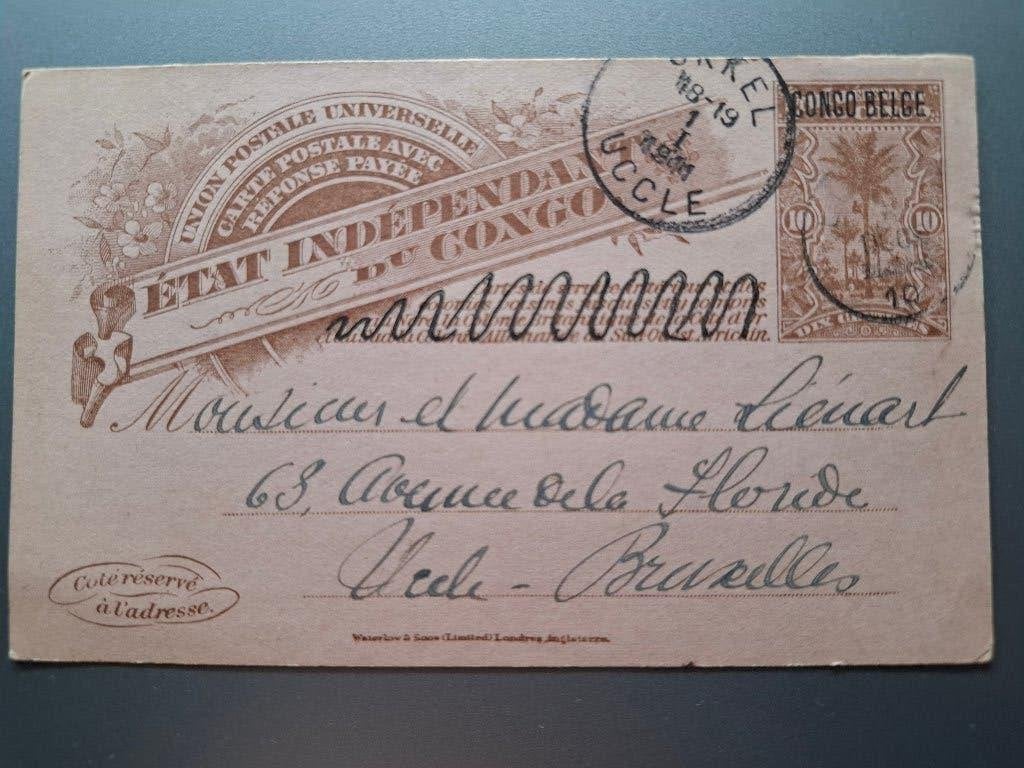 UNION POSTALE UNIVERSELLE
CARTE POSTALE AVEC
RÉPONSE PAYÉE
ÉTAT INDÉPENDANT
DU CONGO
UKKEL
18-19
1
I
UCCLE
CONGO BELGE
10 10
10
Sud-Ouest Africain.
Monsieur et Madame Liénart
63, Avenue de la Floride
Uccle - Bruxelles
Côté réservé
à l'adresse.
Waterlow & Sons (Limited) Londres, Angleterre.